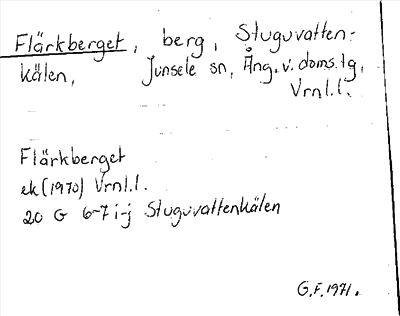 Flärkberget, berg, Stuguvatten-
kälen, Junsele sn, Ång. v. doms.lg,
Vrnl.l.
Flärkberget
ek (1970) Vrnl.l.
20 G 6-7 i-j Stuguvattenkälen
G.F. 1971.